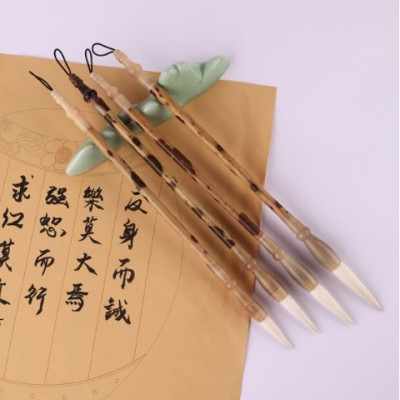 反身而誠
樂莫大焉
强恕而行
求仁莫